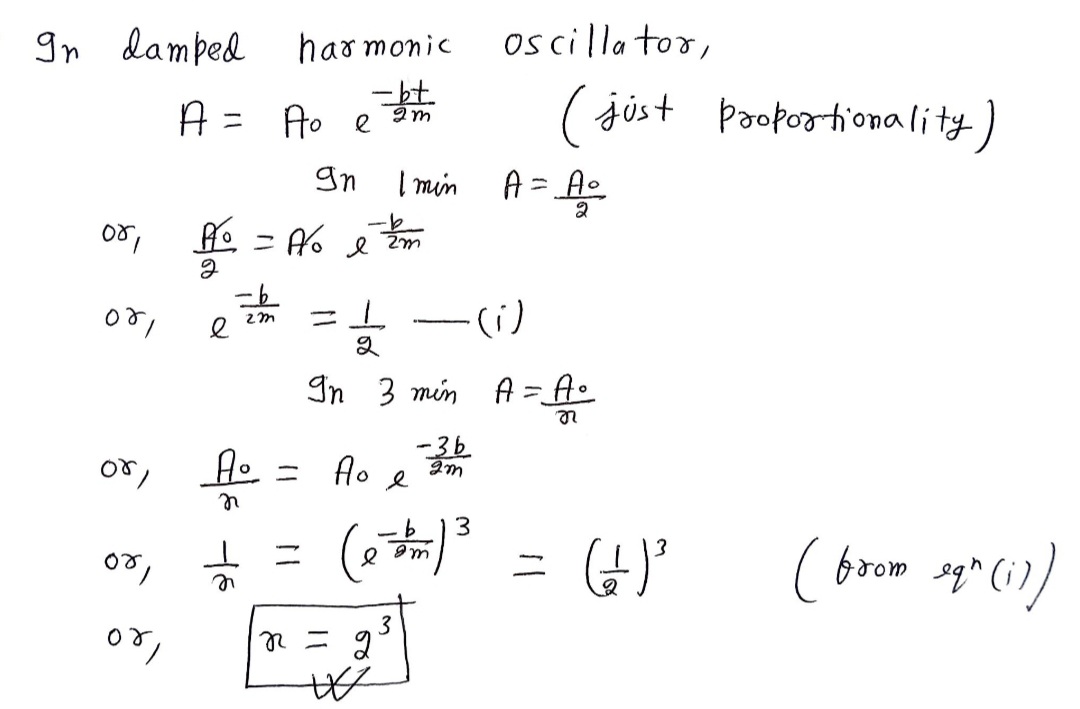 In damped harmonic oscillator,
A = A₀ e^(-bt/2m) (just proportionality)
In 1 min A = A₀/2
or, A₀/2 = A₀ e^(-b/2m)
or, e^(-b/2m) = 1/2 — (i)
In 3 min A = A₀/n
or, A₀/n = A₀ e^(-3b/2m)
or, 1/n = (e^(-b/2m))^3 = (1/2)^3 (from eqⁿ (i))
or, n = 2^3